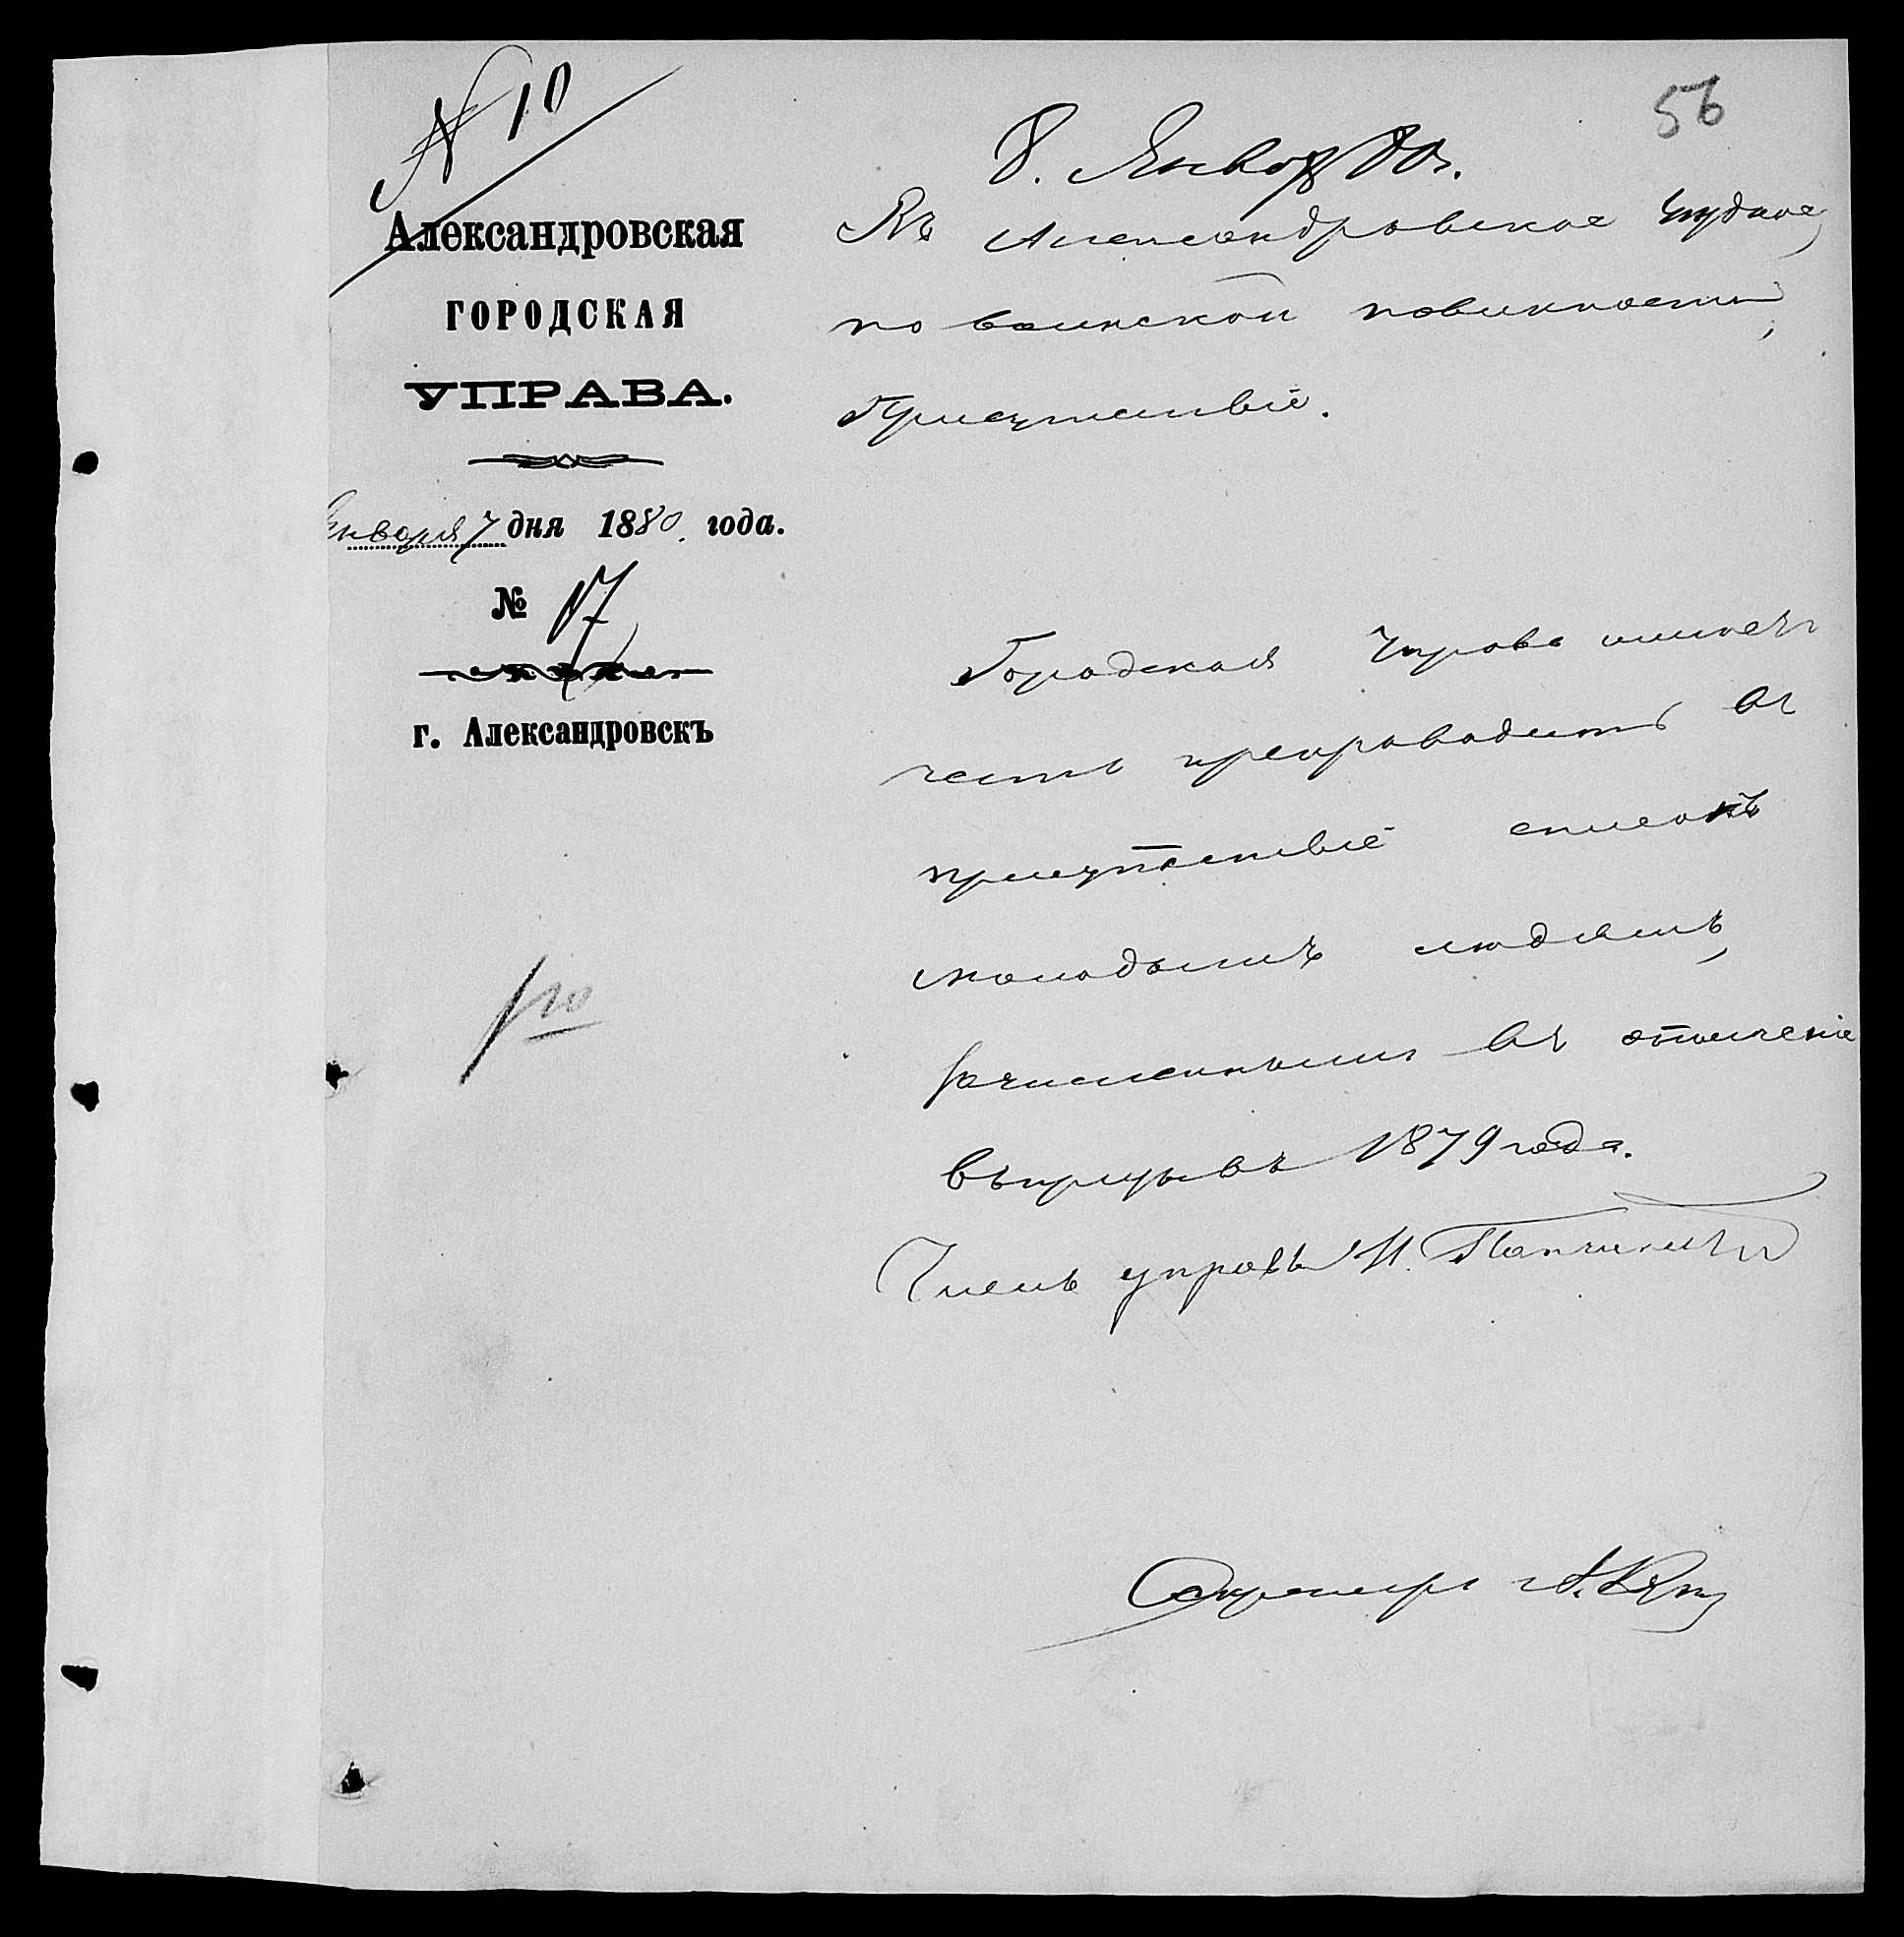 № 10
56
Александровская
ГОРОДСКАЯ
УПРАВА.
Января 7 дня 1880 года.
№ 17
г. Александровскъ
8. Января 80 г.
Въ Александровское Уѣздное
по воинской повинности,
Присутствіе.
Городская Управа имѣетъ
честь препроводить въ
присутствіе списокъ
молодымъ людямъ,
зачисленнымъ въ ополченіе
въ призывъ 1879 года.
Членъ управы И.
Секретарь